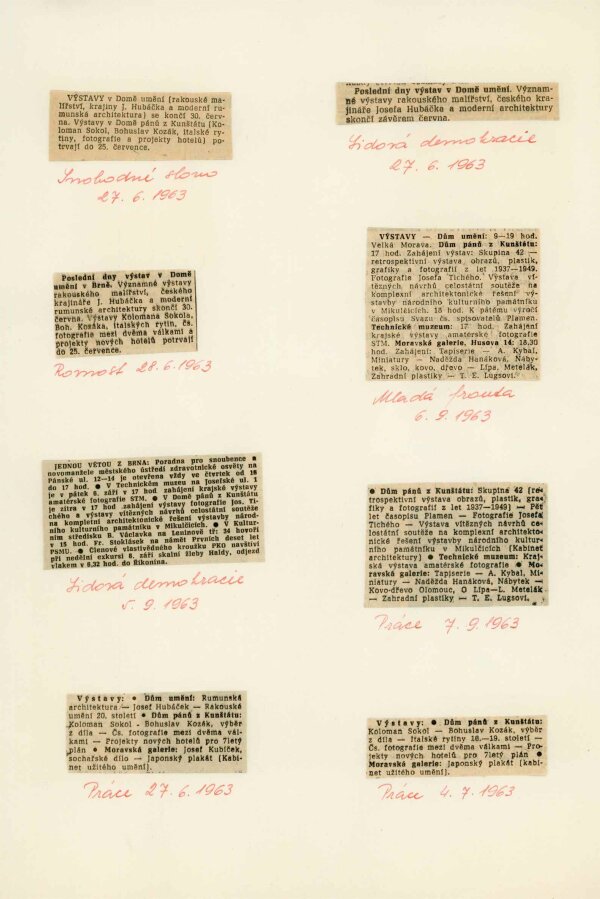 VÝSTAVY v Domě umění (rakouské ma-
lířství, krajiny J. Hubáčka a moderní ru-
munská architektura) se končí 30. červ-
na. Výstavy v Domě pánů z Kunštátu (Ko-
loman Sokol, Bohuslav Kozák, italské ry-
tiny, fotografie a projekty hotelů) po-
trvají do 25. července.
Svobodné slovo
27. 6. 1963
Poslední dny výstav v Domě umění. Význam-
né výstavy rakouského malířství, českého kra-
jináře Josefa Hubáčka a moderní architektury
skončí závěrem června.
Lidová demokracie
27. 6. 1963
Poslední dny výstav v Domě
umění v Brně. Významné výstavy
rakouského malířství, českého
krajináře J. Hubáčka a moderní
rumunské architektury skončí 30.
června. Výstavy Kolomana Sokola,
Boh. Kozáka, italských rytin, čs.
fotografie mezi dvěma válkami a
projekty nových hotelů potrvají
do 25. července.
Rovnost 28. 6. 1963
VÝSTAVY — Dům umění: 9—19 hod.
Velká Morava. Dům pánů z Kunštátu:
17 hod. Zahájení výstav: Skupina 42 —
retrospektivní výstava obrazů, plastik,
grafiky a fotografií z let 1937—1949.
Fotografie Josefa Tichého. Výstava ví-
tězných návrhů celostátní soutěže na
komplexní architektonické řešení vý-
stavby národního kulturního památníku
v Mikulčicích. 18 hod. K pátému výročí
časopisu Svazu čs. spisovatelů Plamen.
Technické museum: 17 hod. Zahájení
krajské výstavy amatérské fotografie
STM. Moravská galerie, Husova 14: 18,30
hod. Zahájení: Tapiserie — A. Kybal,
Miniatury — Naděžda Hanáková, Náby-
tek, sklo, kov, dřevo — Lípa, Metelák,
Zahradní plastiky — T. E. Lugsoví.
Mladá fronta
6. 9. 1963
JEDNOU VĚTOU Z BRNA: Poradna pro snoubence a
novomanžele městského ústředí zdravotnické osvěty na
Pánské ul. 12—14 je otevřena vždy ve čtvrtek od 16
do 17 hod. ● V Technickém muzeu na Josefské ul. 1
je v pátek 6. září v 17 hod. zahájení krajské výstavy
amatérské fotografie STM. ● V Domě pánů z Kunštátu
je zítra v 17 hod. zahájení výstavy fotografa Jos. Ti-
chého a výstavy vítězných návrhů celostátní soutěže
na komplexní architektonické řešení výstavby národ-
ního kulturního památníku v Mikulčicích. ● V Kultur-
ním středisku B. Václavka na Leninově tř. 34 hovoří
v 15 hod. Fr. Stoklásek na námět Prvních deset let
PSMU. ● Členové vlastivědného kroužku PKO navštíví
při nedělní exkursi 8. září skalní žleby Haldy, odjezd
vlakem v 8,32 hod. do Říkonína.
Lidová demokracie
5. 9. 1963
● Dům pánů z Kunštátu: Skupina 42 (re-
trospektivní výstava obrazů, plastik, gra-
fiky a fotografií z let 1937—1949) — Pět
let časopisu Plamen — Fotografie Josefa
Tichého — Výstava vítězných návrhů ce-
lostátní soutěže na komplexní architekto-
nické řešení výstavby národního kulturní-
ního památníku v Mikulčicích (Kabinet
architektury) ● Technické muzeum: Kraj-
ská výstava amatérské fotografie ● Mo-
ravská galerie: Tapiserie — A. Kybal, Mi-
niatury — Naděžda Hanáková, Nábytek —
Kovo-dřevo Olomouc, O Lípa—L. Metelák
— Zahradní plastiky — T. E. Lugsoví.
Práce 7. 9. 1963
Výstavy: ● Dům umění: Rumunská
architektura — Josef Hubáček — Rakouské
umění 20. století ● Dům pánů z Kunštátu:
Koloman Sokol - Bohuslav Kozák, výběr
z díla — Čs. fotografie mezi dvěma vál-
kami — Projekty nových hotelů pro 7letý
plán ● Moravská galerie: Josef Kubíček,
sochařské dílo — Japonský plakát (Kabi-
net užitého umění).
Práce 27. 6. 1963
Výstavy: ● Dům pánů z Kunštátu:
Koloman Sokol — Bohuslav Kozák, výběr
z díla — Italské rytiny 16.—19. století —
Čs. fotografie mezi dvěma válkami — Pro-
jekty nových hotelů pro 7letý plán ●
Moravská galerie: Japonský plakát (kabi-
net užitého umění).
Práce 4. 7. 1963